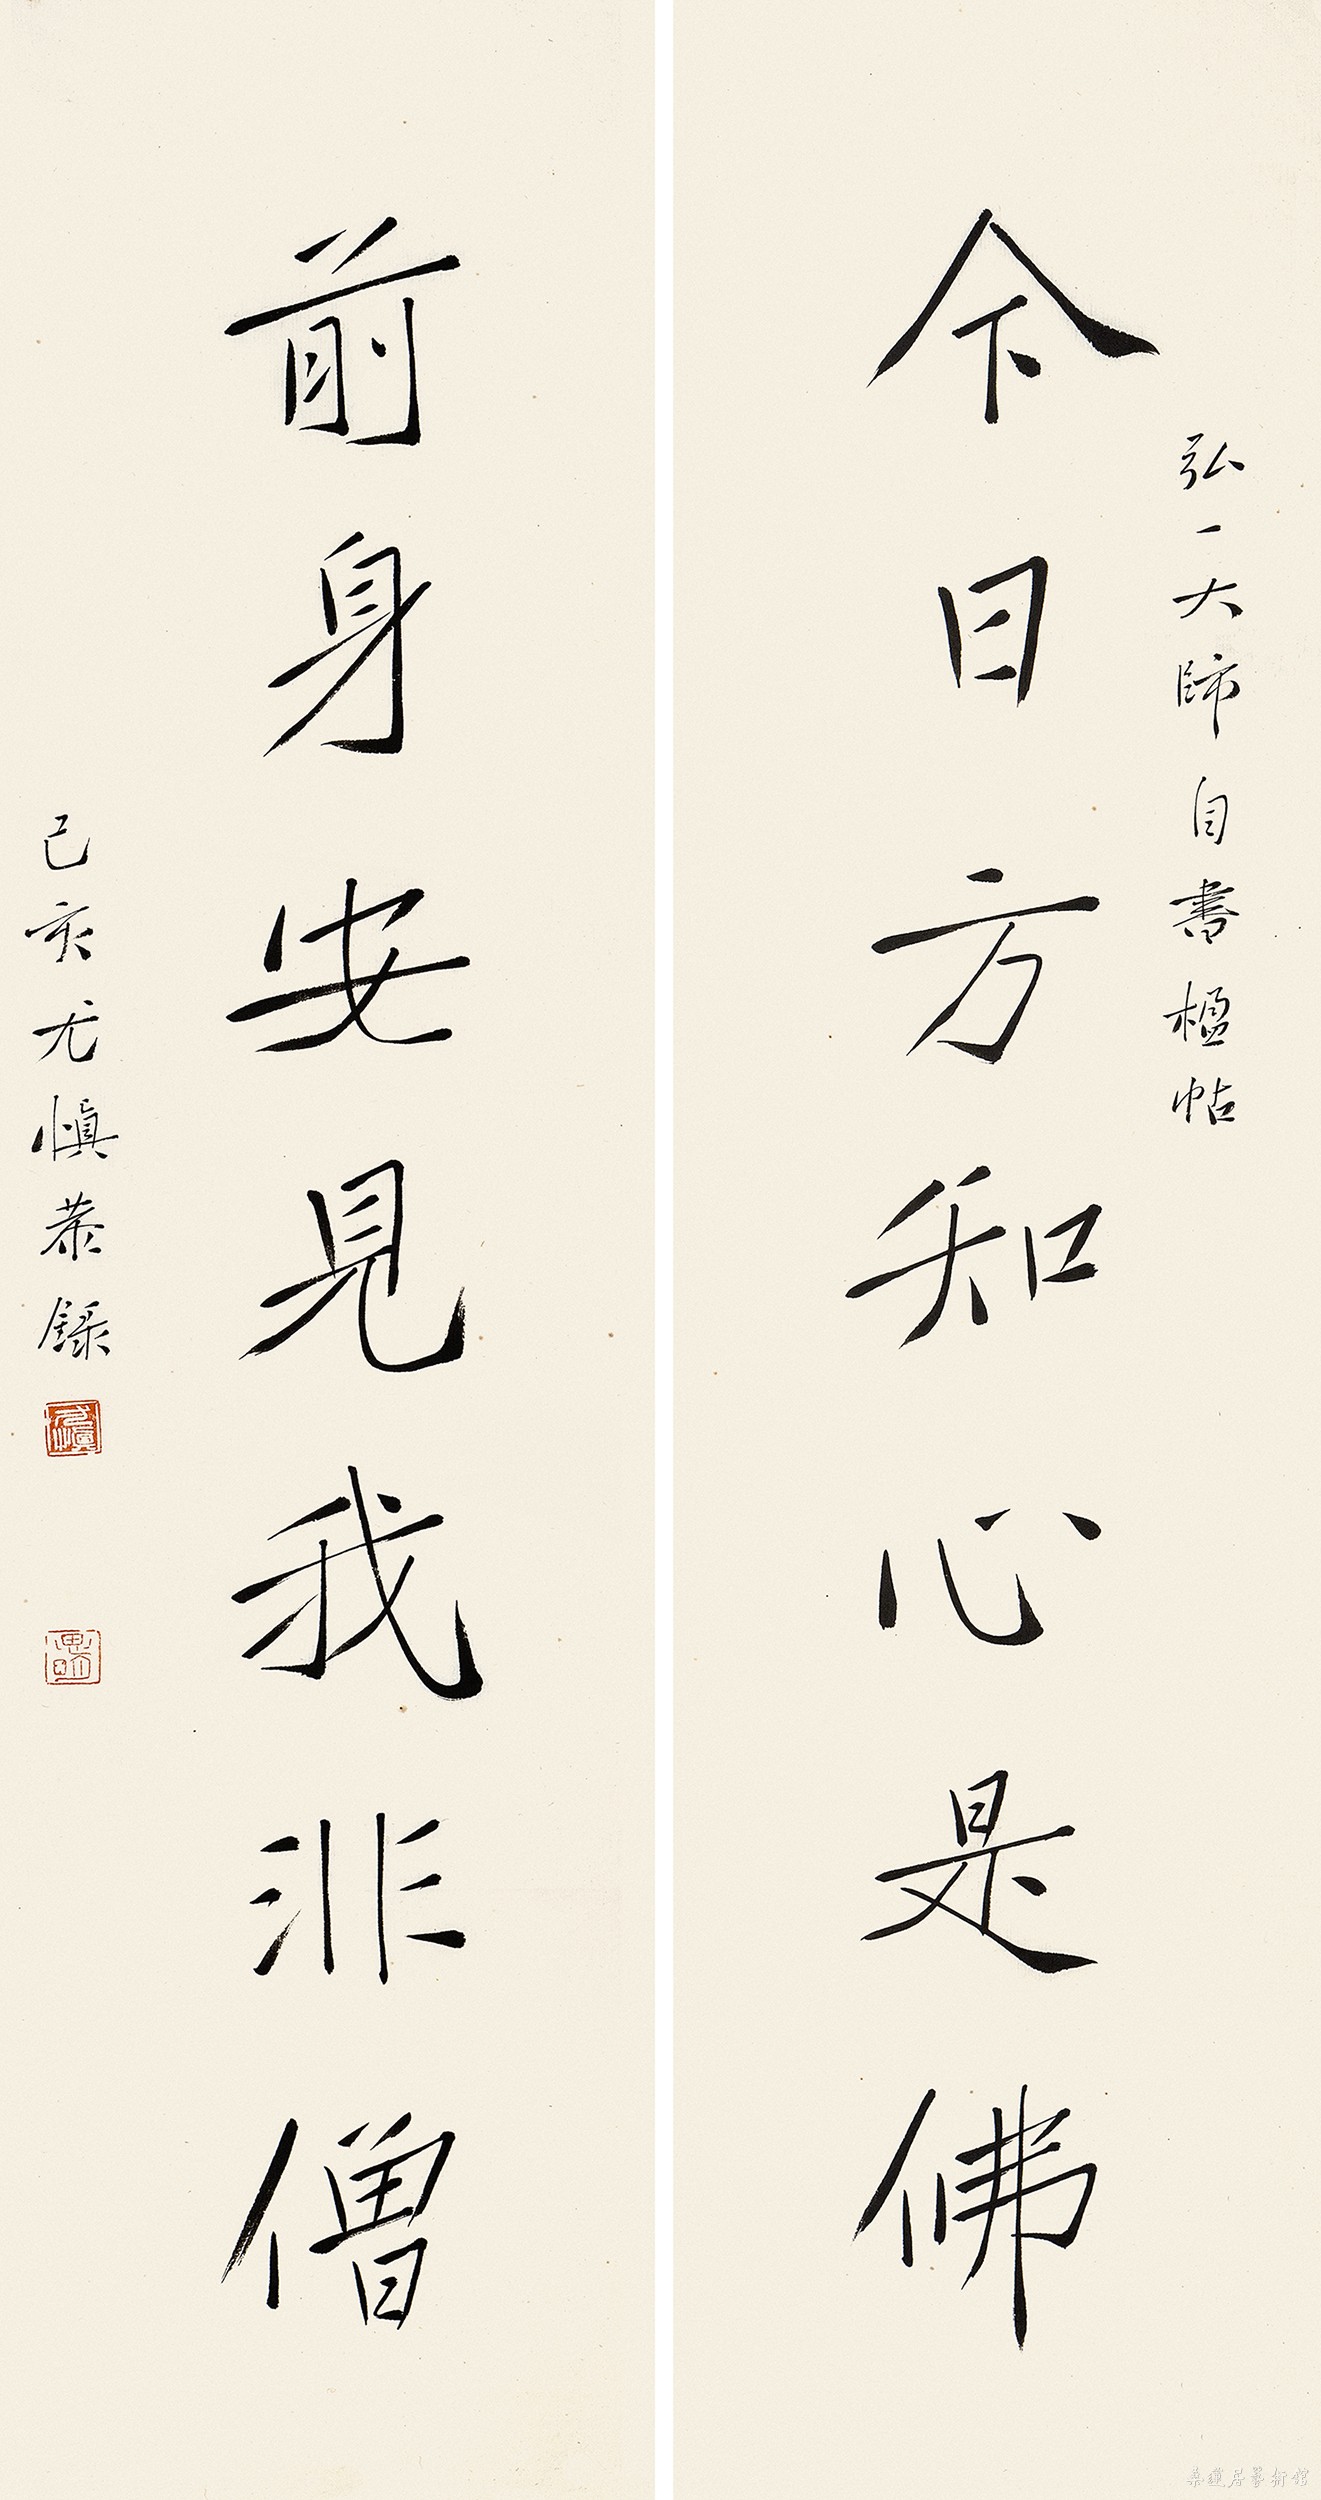 弘一大師自書楹帖
今日方知心是佛
前身安見我非僧
己亥尤慎恭錄
尤慎